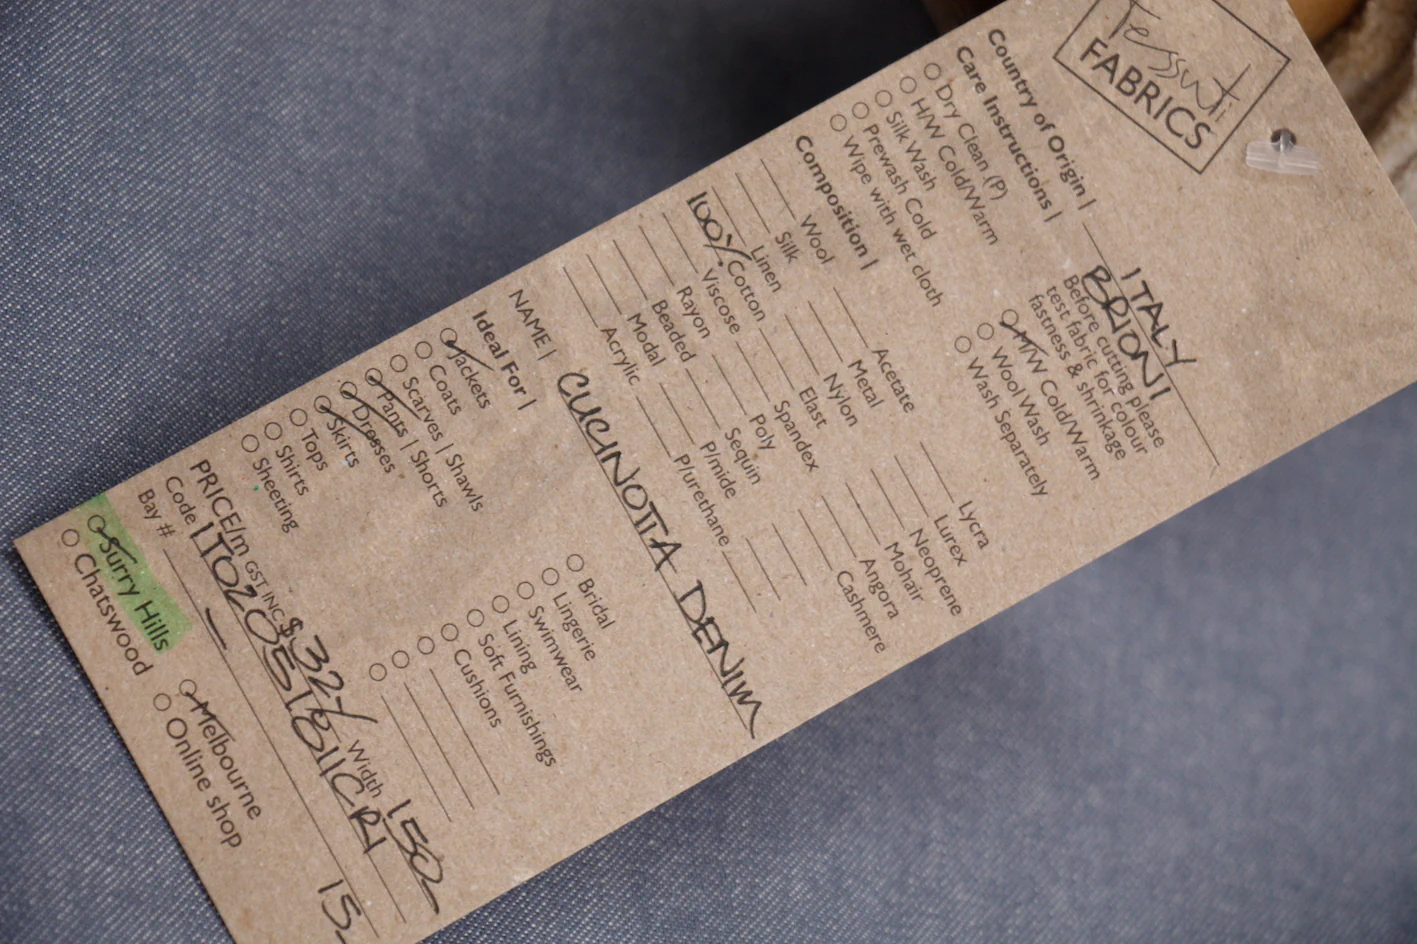 Tessuti
FABRICS
Country of Origin | ITALY
BRIONI
Care Instructions |
Before cutting please
test fabric for colour
fastness & shrinkage
Dry Clean (P)
H/W Cold/Warm
Silk Wash
Prewash Cold
Wipe with wet cloth
H/W Cold/Warm
Wool Wash
Wash Separately
Composition |
Wool
Silk
Linen
100% Cotton
Viscose
Rayon
Beaded
Modal
Acrylic
Acetate
Metal
Nylon
Elast
Spandex
Poly
Sequin
P/mide
P/urethane
Lycra
Lurex
Neoprene
Mohair
Angora
Cashmere
NAME | CUCINOTTA DENIM
Ideal For |
Jackets
Coats
Scarves | Shawls
Pants | Shorts
Dresses
Skirts
Tops
Shirts
Sheeting
Bridal
Lingerie
Swimwear
Lining
Soft Furnishings
Cushions
PRICE/m GST INC $32-/ Width 150
Code
Bay #
15
Surry Hills
Chatswood
Melbourne
Online shop